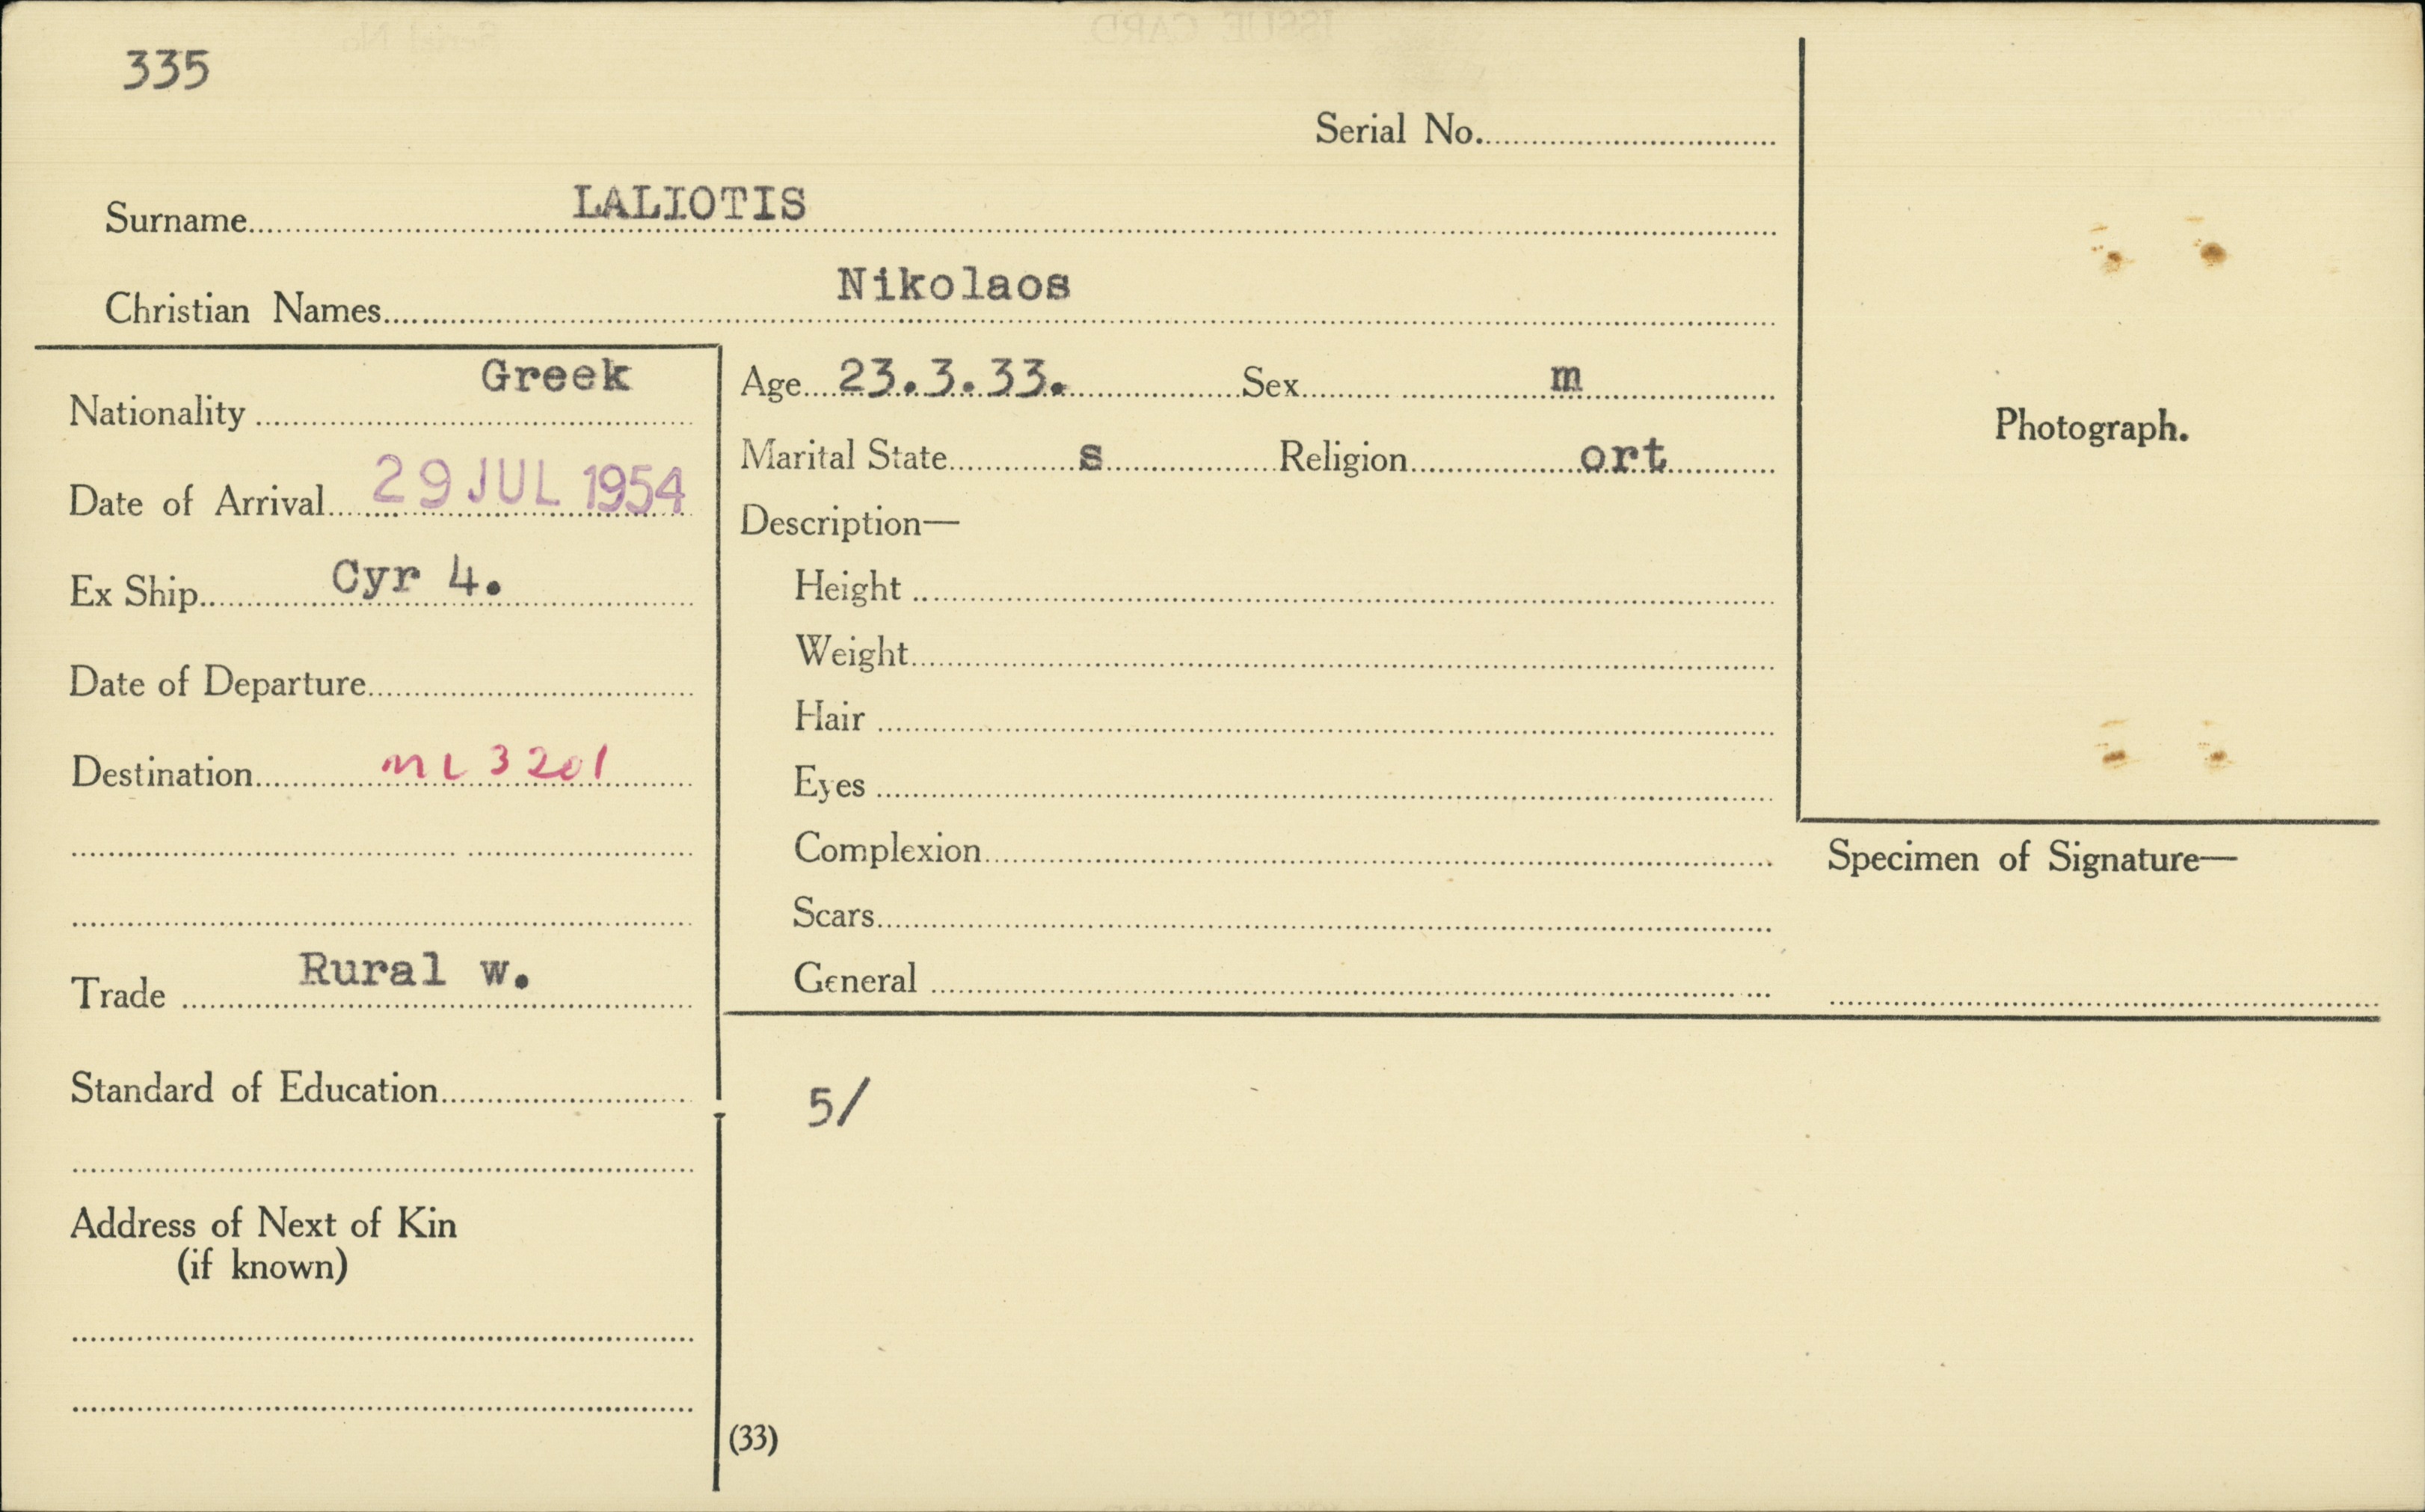 335
Serial No.
Surname LALIOTIS
Christian Names Nikolaos
Nationality Greek
Date of Arrival 29 JUL 1954
Ex Ship Cyr 4.
Date of Departure
Destination ML 3201
Trade Rural w.
Standard of Education
Address of Next of Kin
(if known)
Age 23.3.33. Sex m
Marital State s Religion ort
Description—
Height
Weight
Hair
Eyes
Complexion
Scars
General
5/
(33)
Photograph.
Specimen of Signature—
ISSUE CARD
Serial No